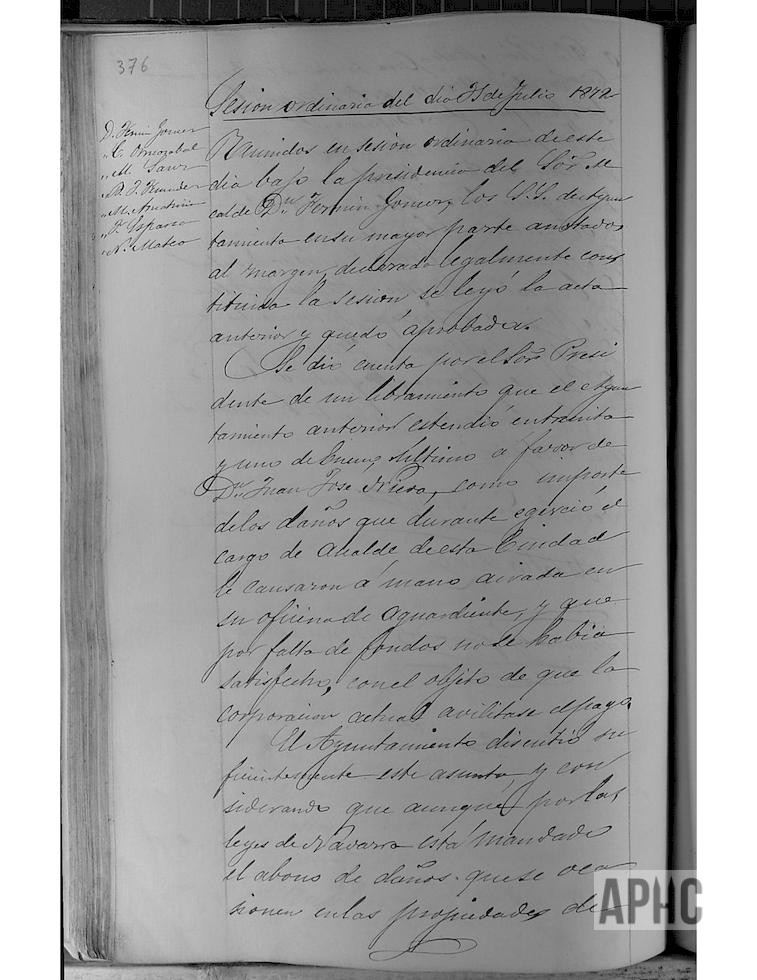 376
Sesion ordinaria del dia 21 de Julio 1872
D. Fermin Gomez
" C. Ormazabal
" M. Sanz
" B. J.
" M.
" P. Esparza
" N. Mateo
Reunidos en sesion ordinaria de este
dia bajo la presidencia del Sor. Al
calde Dn. Fermin Gomez, los S.S. de Ayun
tamiento en su mayor parte anotados
al margen, declarada legalmente cons
tituida la sesion se leyó la acta
anterior y quedó aprobada.
Se dió cuenta por el Sor. Presi
dente de un libramiento que el Ayun
tamiento anterior estendió en treinta
y uno de Enero ultimo a favor de
Dn. Juan Jose Riera, como importe
de los daños que durante egerció el
cargo de Alcalde de esta Ciudad
le causaron á mano airada en
su oficina de aguardiente, y que
por falta de fondos no se habia
satisfecho, con el objeto de que la
corporacion actual avilitase el pago.
El Ayuntamiento discutió su
ficientemente este asunto, y con
siderando que aunque por las
leyes de Navarra está mandado
el abono de daños que se oca
sionen en las propiedades de
APHC